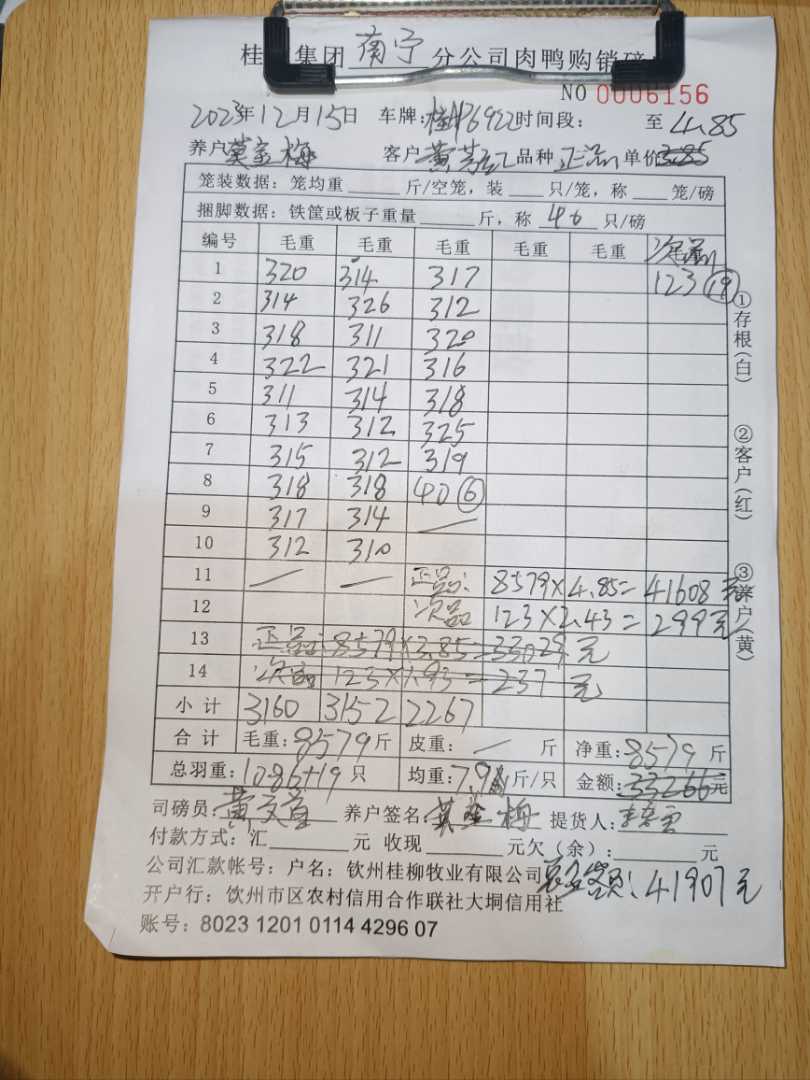 桂 集团 南宁 分公司肉鸭购销磅
NO 0006156
2023年12月15日 车牌: 6922 时间段: 至 4.85
养户 莫金梅 客户 黄 品种 正品 单价 3.85
笼装数据: 笼均重 斤/空笼, 装 只/笼, 称 笼/磅
捆脚数据: 铁筐或板子重量 斤, 称 40 只/磅
编号 毛重 毛重 毛重 毛重 毛重 次品
1 320 314 317 123 (19)
2 314 326 312
3 318 311 320
4 322 321 316
5 311 314 318
6 313 312 325
7 315 312 319
8 318 318 40 (6)
9 317 314 —
10 312 310
11 — — 正品: 8579×4.85=41608元
12 次品 123×2.43=299元
13 正品: 8579×3.85=33029元
14 次品 123×1.93=237元
小计 3160 3152 2267
合计 毛重: 8579 斤 皮重: — 斤 净重: 8579 斤
总羽重: 1086+19 只 均重: 7.9 斤/只 金额: 33266元
司磅员: 黄 养户签名: 莫金梅 提货人:
付款方式: 汇 元 收现 元欠(余): 元
公司汇款帐号: 户名: 钦州桂柳牧业有限公司
: 41907元
开户行: 钦州市区农村信用合作联社大垌信用社
账号: 8023 1201 0114 4296 07
①存根(白)
②客户(红)
③养户(黄)